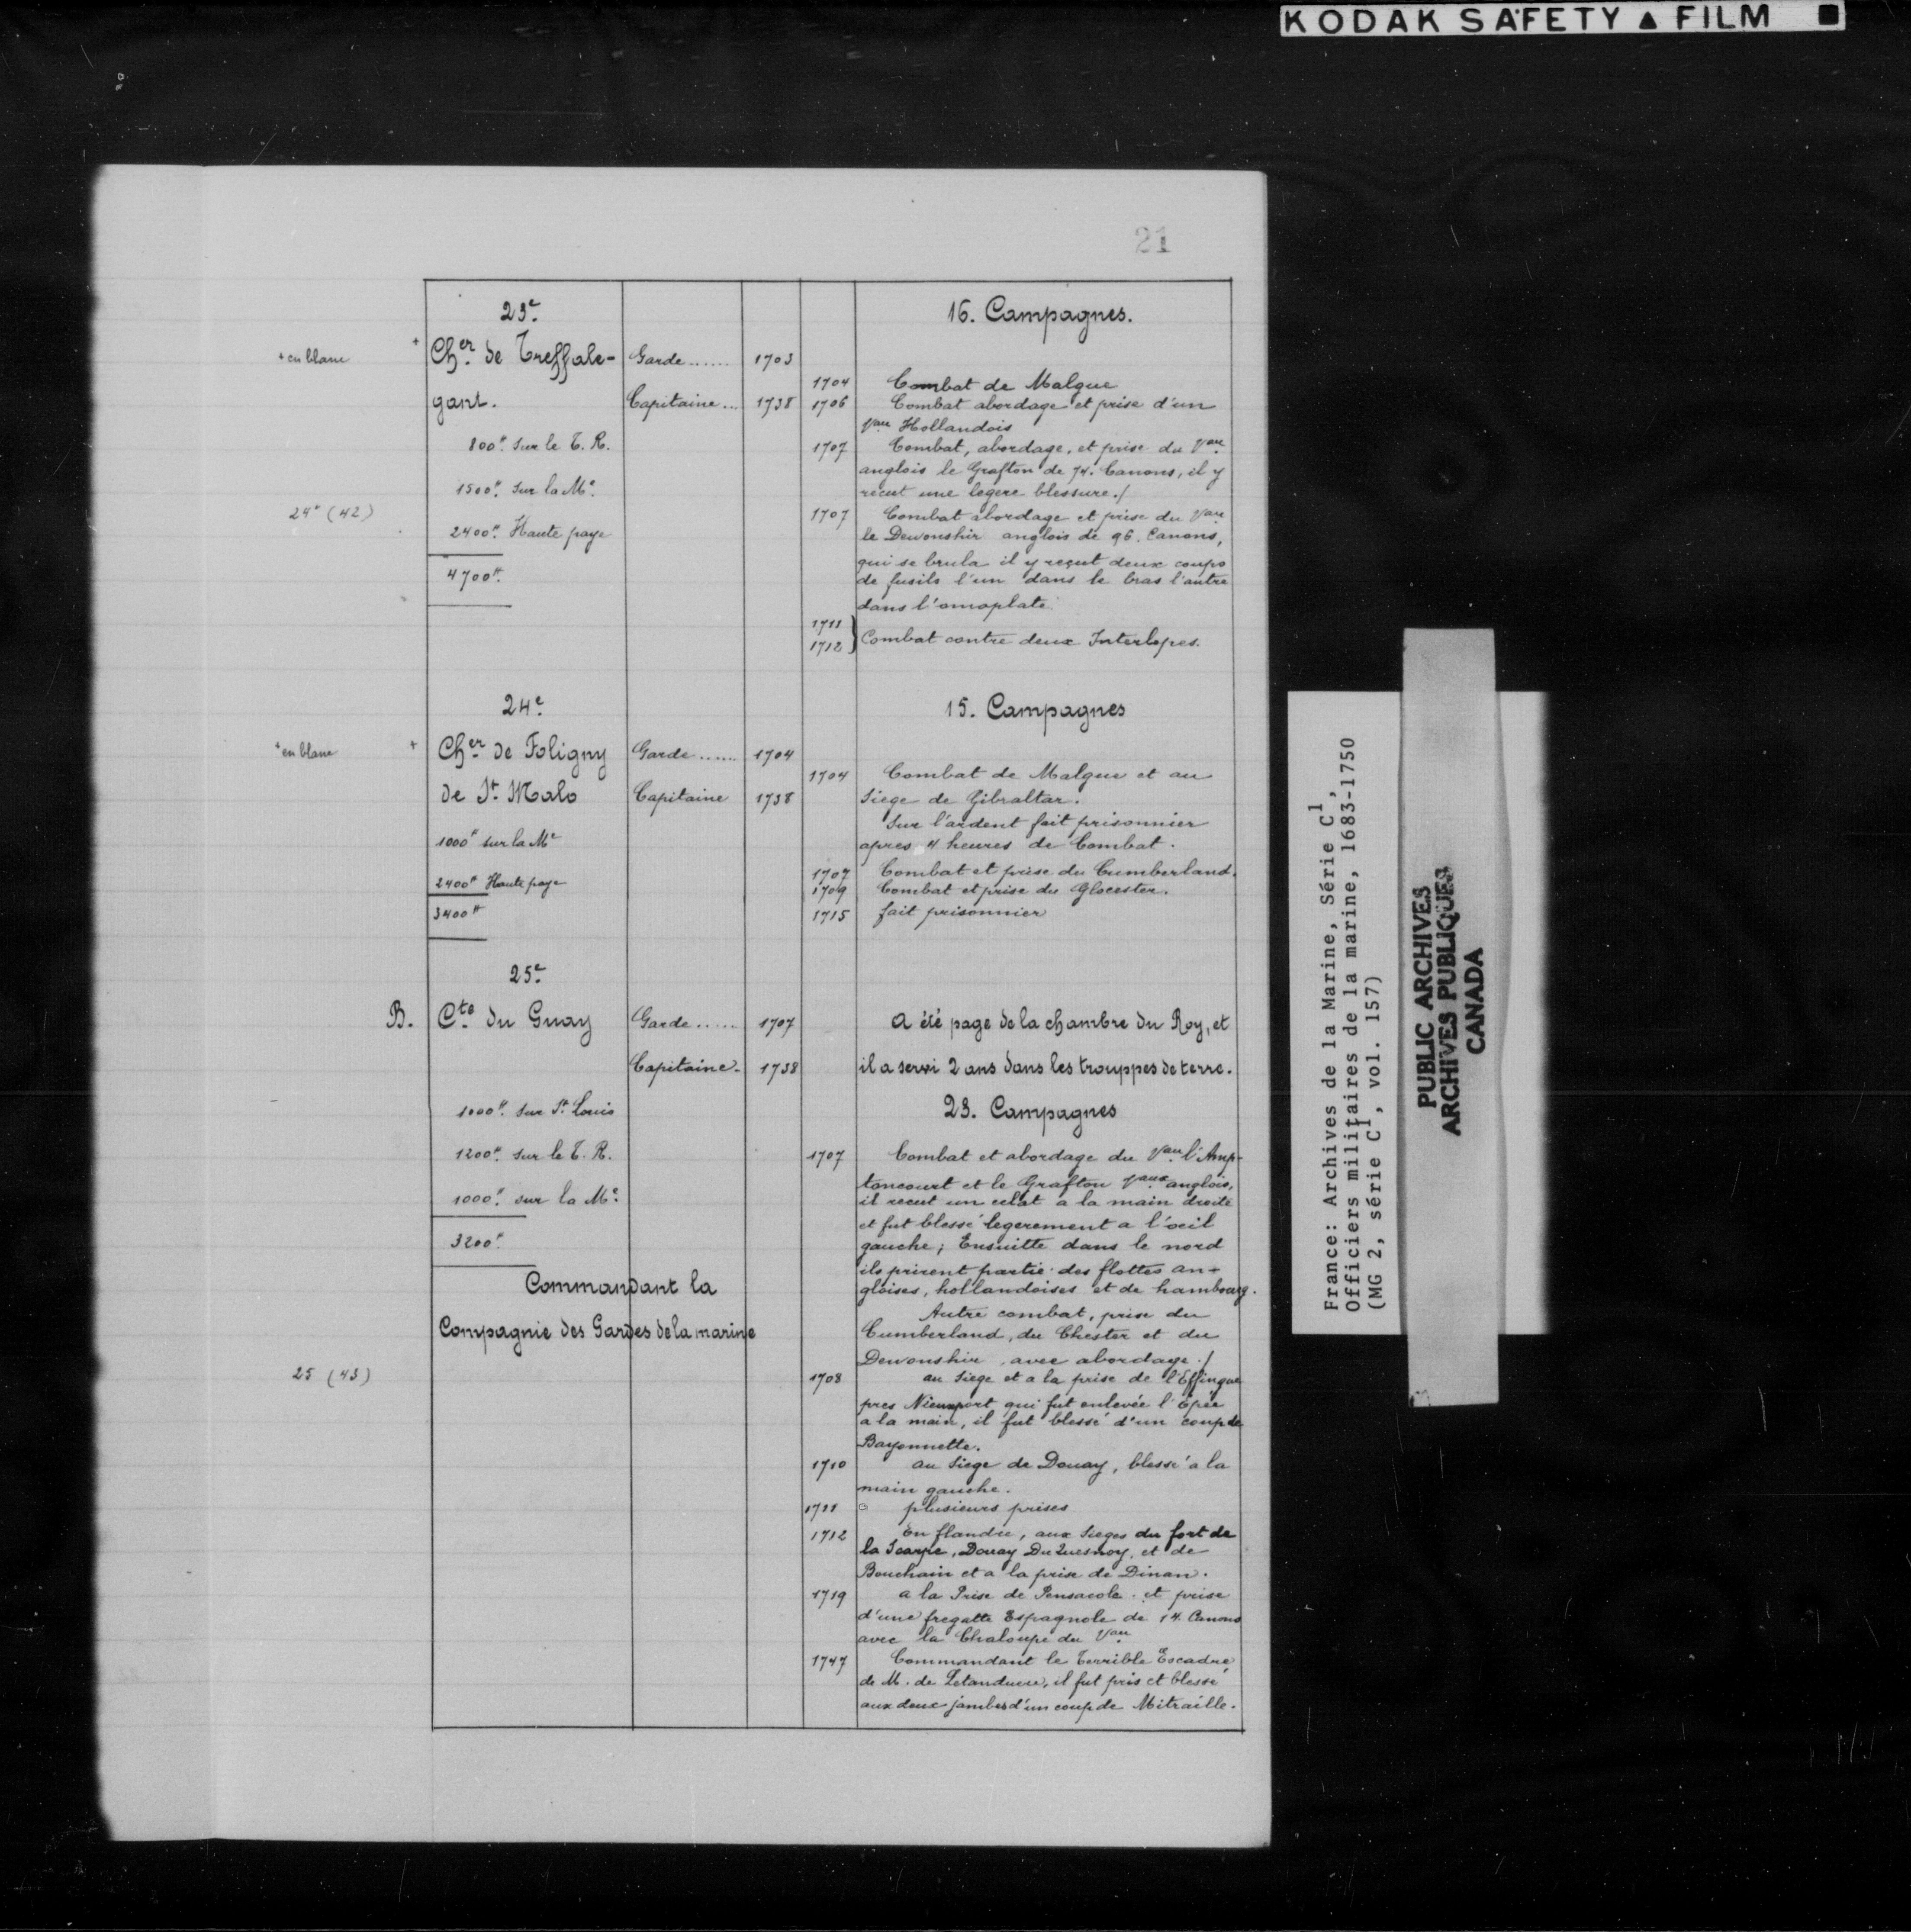 KODAK SAFETY ▲ FILM ■
21
23e.
16. Campagnes.
+ en blanc
+ Cher. de Treffale-
Garde....... 1703
1704 Combat de Malgue
gant.
Capitaine... 1738
1706 Combat abordage et prise d'un
Vau Hollandois
800# sur le T. R.
1707 Combat, abordage, et prise du Vau
anglois le Grafton de 74. Canons, il y
1500# sur la Me.
recut une legere blessure./
24e (42)
1707 Combat abordage et prise du Vau
2400# Haute paye
le Dewonshir anglois de 96. Canons,
qui se brula il y reçut deux coups
4700#
de fusils l'un dans le bras l'autre
dans l'omoplate
1711
1712 } Combat contre deux Interlopes.
24e.
15. Campagnes
+ en blanc
+ Cher. de Foligny
Garde...... 1704
1704 Combat de Malgue et au
de St. Malo
Capitaine 1738
Siege de Gibraltar.
Sur l'ardent fait prisonnier
1000# sur la Me
apres 4 heures de Combat.
1707 Combat et prise du Cumberland.
2400# Haute paye
1709 Combat et prise du Glocester.
3400#
1715 fait prisonnier
25e.
B. Cte. du Guay
Garde...... 1707
A été page de la chambre du Roy, et
Capitaine. 1738
il a servi 2 ans dans les trouppes de terre.
1000# sur St. Louis
23. Campagnes
1200# sur le T. R.
1707 Combat et abordage du Vau l'Amp-
toncourt et le Grafton Vaux anglois,
1000# sur la Me.
il recut un eclat a la main droite
et fut blessé legerement a l'oeil
3200#
gauche; Ensuitte dans le nord
ils prirent partie des flottes an-
Commandant la
gloises, hollandoises et de hambourg.
Autre combat, prise du
Compagnie des Gardes de la marine
Cumberland, du Chester et du
Dewonshir, avec abordage./
25 (43)
1708 au siege et a la prise de l'Effingue
pres Nieuport qui fut enlevée l'Epée
a la main, il fut blessé d'un coup de
Bayonnette.
1710 au siege de Douay, blessé a la
main gauche.
1711 plusieurs prises
1712 En flandre, aux sieges du fort de
la Scarpe, Douay Du Quesnoy, et de
Bouchain et a la prise de Dinan.
1719 a la Prise de Pensacole et prise
d'une fregatte Espagnole de 14. Canons
avec la Chaloupe du Vau
1747 Commandant le Terrible Escadre
de M. de Letanduere, il fut pris et blessé
aux deux jambes d'un coup de Mitraille.
France: Archives de la Marine, Série C1,
Officiers militaires de la marine, 1683-1750
(MG 2, série C1, vol. 157)
PUBLIC ARCHIVES
ARCHIVES PUBLIQUES
CANADA